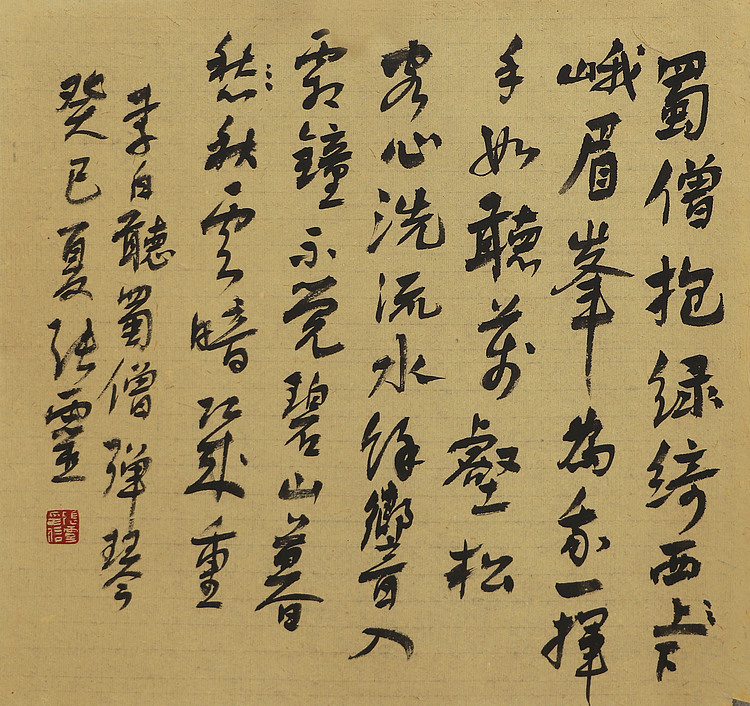 蜀僧抱綠綺西上下
峨眉峯為我一揮
手如聽萬壑松
客心洗流水餘響入
霜鐘不覺碧山暮
愁秋雲暗幾重
李白聽蜀僧彈琴
癸巳夏張靈
張靈印信